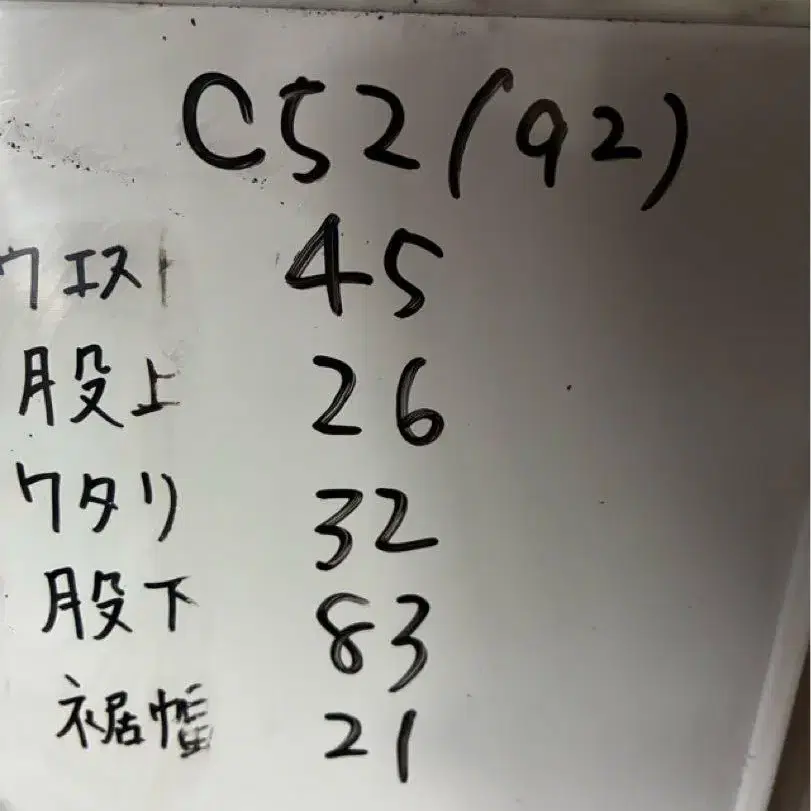 C52(92)
ウエスト 45
股上 26
ワタリ 32
股下 83
裾幅 21